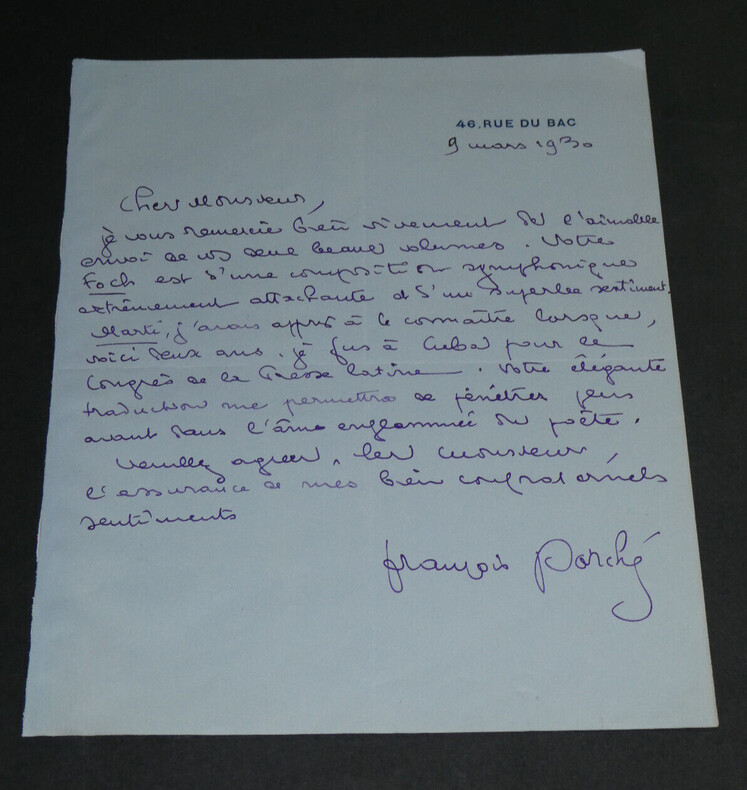 46, RUE DU BAC
9 mars 1930
Cher Monsieur,
je vous remercie bien vivement de l'aimable
envoi de vos deux beaux volumes. Votre
Foch est d'une composition symphonique
extrêmement attachante et d'un superbe sentiment.
Marti, j'avais appris à le connaître lorsque,
voici deux ans, je fus à Cuba pour le
Congrès de la Presse latine. Votre élégante
traduction me permettra de pénétrer plus
avant dans l'âme enflammée du poète.
Veuillez agréer, cher Monsieur,
l'assurance de mes bien confraternels
sentiments
François Porché